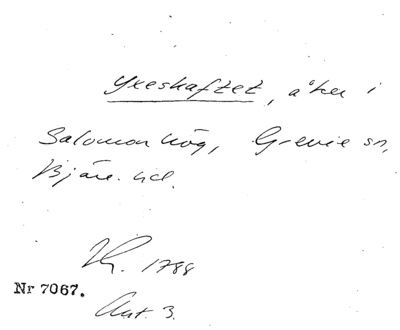 Yxeskaftet, åker i
Salomonhög, Grevie sn,
Bjäre hd.
1788
Nr 7067.
Akt. 3.